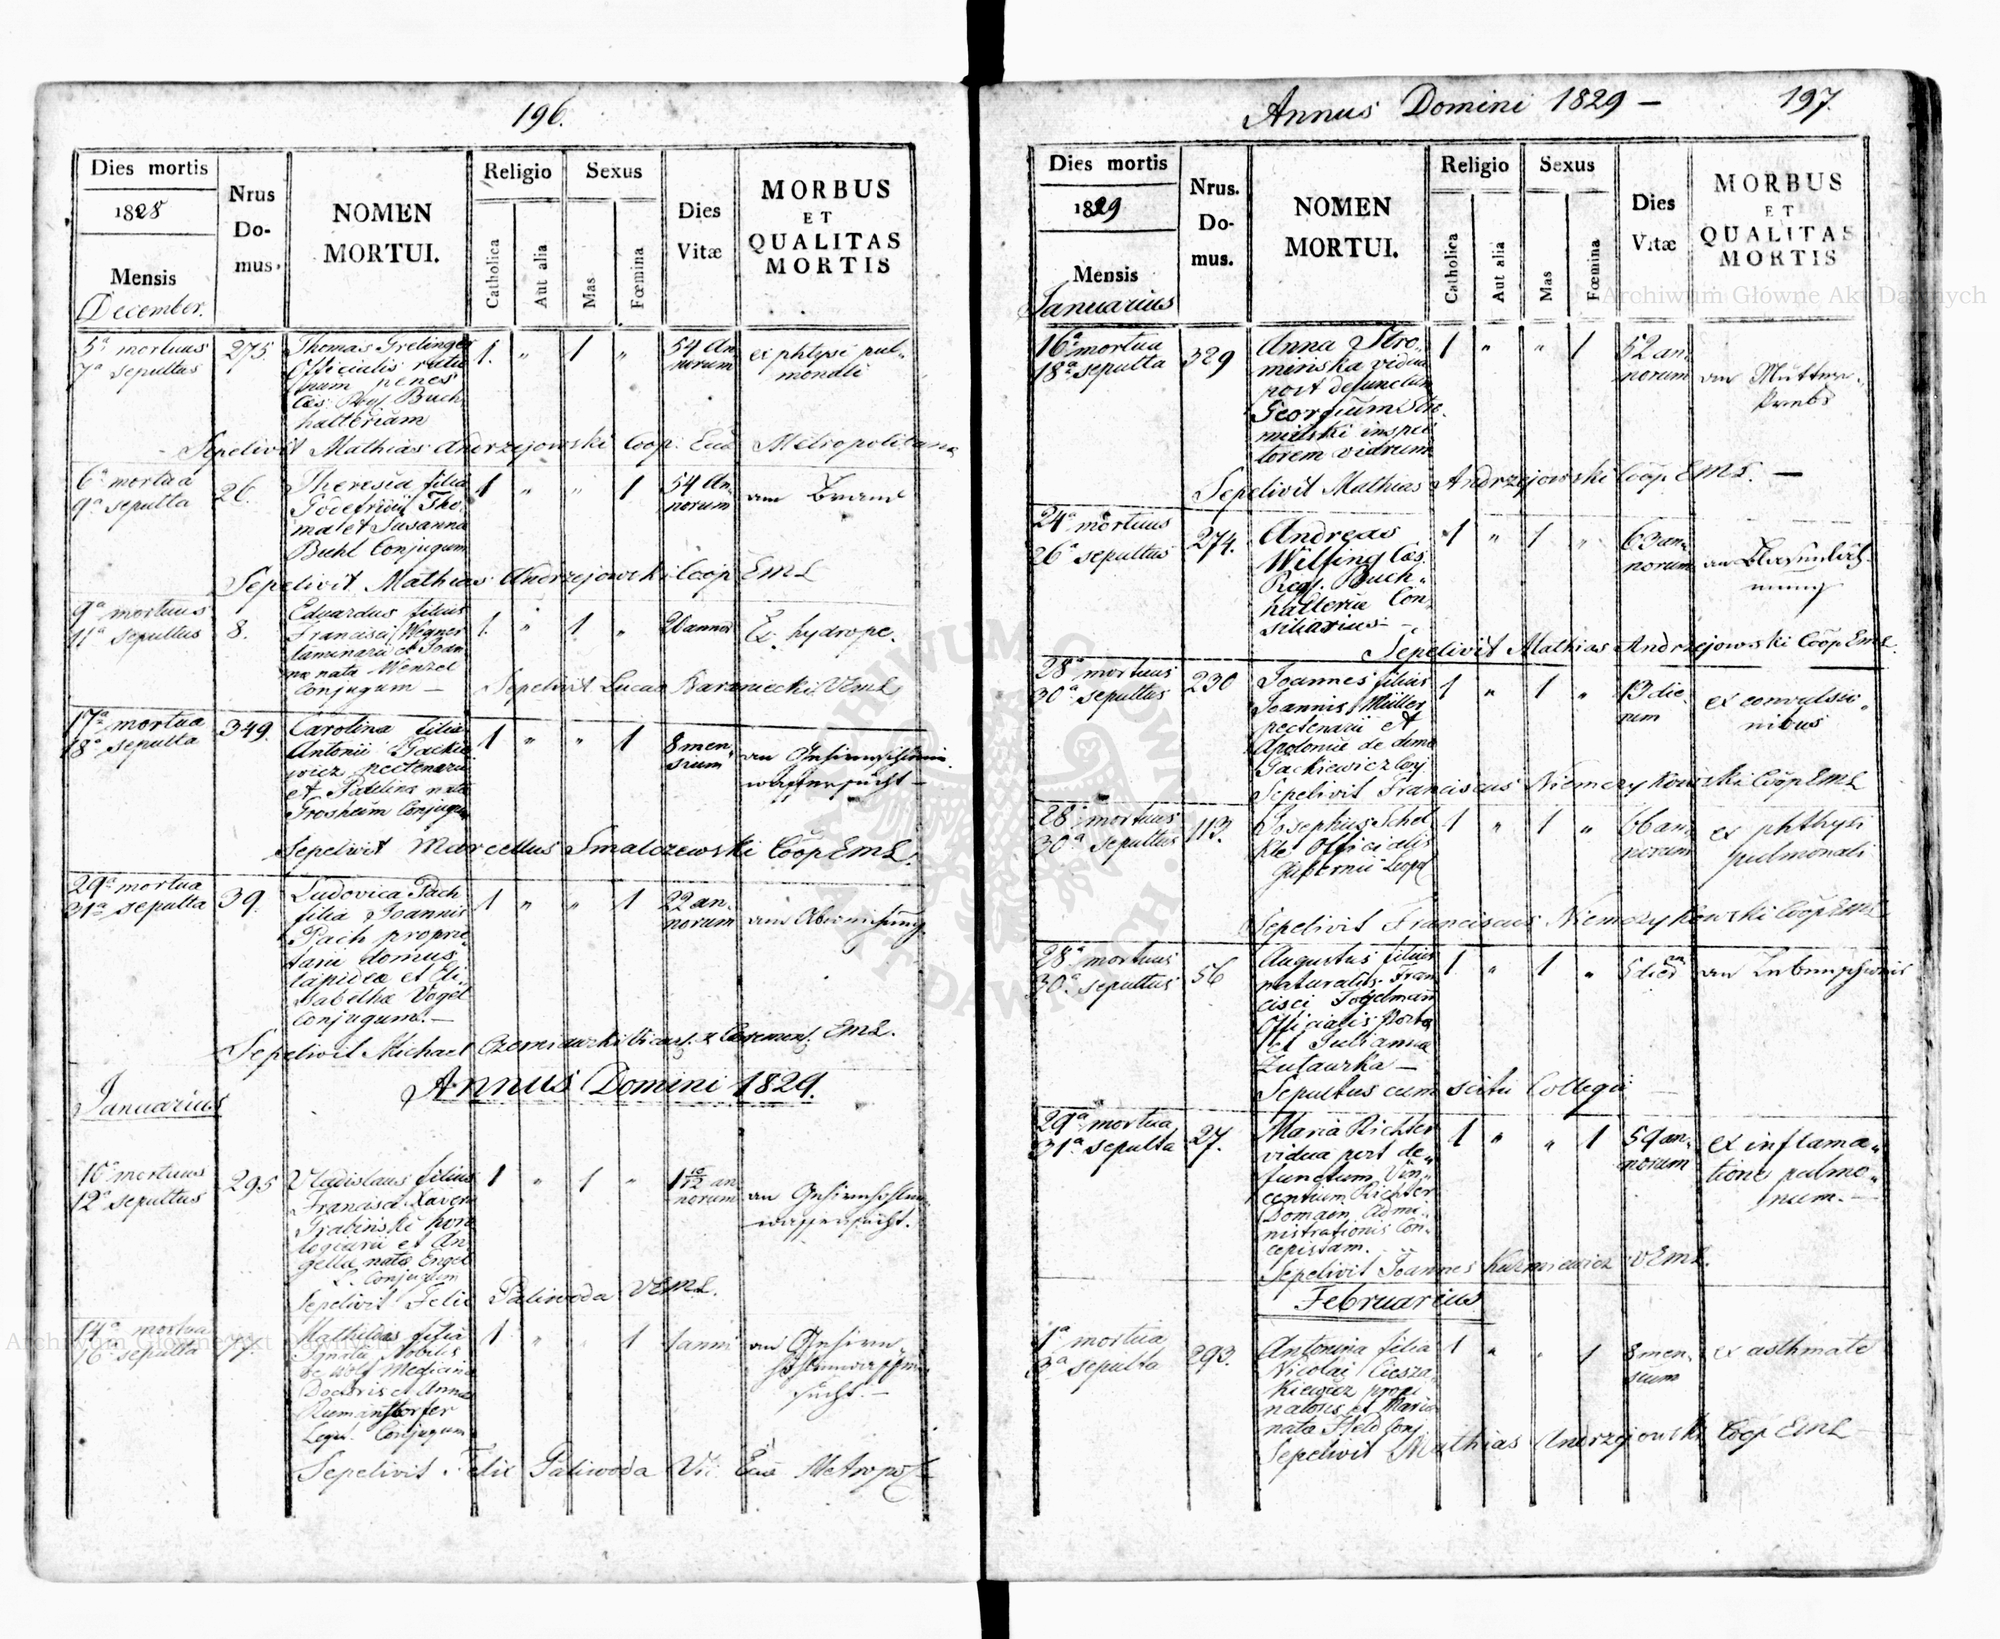 196.
Dies mortis
1828
Mensis
December.
Nrus
Do-
mus.
NOMEN
MORTUI.
Religio
Catholica
Aut alia
Sexus
Mas
Fœmina
Dies
Vitæ
MORBUS
ET
QUALITAS
MORTIS
5a mortuus
7a sepultus
275.
Thomas Grelinger
Officialis
penes
Buch
halteriam
1. " 1 "
54 An
norum
ex phtysi pul-
monali
Sepelivit Mathias Andrzejowski Coop. Metropolitana
6a mortua
9a sepulta
26.
Theresia filia
Godefridi Tho-
ma et Susanna
Biehl Conjugum
1 " " 1
54 An
norum
am Brand
Sepelivit Mathias Andrzejowski Coop EML
9a mortuus
11a sepultus
8.
Eduardus filius
Francisci Wegner
et Joan
na nata Wenzel
Conjugum —
1. " 1 "
Ex hydrope.
Sepelivit Lucas Baraniecki VEML
17a mortua
18a sepulta
349.
Carolina filia
Antonii Gackie
wicz pectenarii
et Paulina nata
Grosheim Conjugum
1 " " 1
8 men-
sium
an
wassersucht —
Sepelivit Marcellus Smalczewski Coop EML.
29a mortua
31a sepulta
39.
Ludovica Pach
filia Joannis
Pach proprie-
tarii domus
lapidea et Eli-
sabetha Vogel
Conjugum. —
1 " " 1
22 an-
norum
Sepelivit Michael EML.
Annus Domini 1829.
Januarius
10a mortuus
12a sepultus
295
Vladislaus filius
Francisci Xaveri
Grabinski horo
logiarii et An-
gella nata Engel
L. Conjugum
1 " 1 "
1 10/12 an
norum
an Gehirnhöhlen-
wassersucht.
Sepelivit Felix Paliwoda VEML.
14a mortua
16a sepulta
Mathildis filia
Ignatii Nobilis
de Wolf Medicina
Doctoris et Anna
Legit. Conjugum
1 " " 1
1 anni
an Gehirn-
sucht. —
Sepelivit Felix Paliwoda Metropol
Annus Domini 1829 —
197.
Dies mortis
1829
Mensis
Januarius
Nrus.
Do-
mus.
NOMEN
MORTUI.
Religio
Catholica
Aut alia
Sexus
Mas
Fœmina
Dies
Vitæ
MORBUS
ET
QUALITAS
MORTIS
16a mortua
18a sepulta
329
Anna Stro-
minska vidua
post defunctum
Georgium Stro-
minski inspec
torem viarum
1 " " 1
52 an-
norum
an Mutter-
krebs
Sepelivit Mathias Andrzejowski Coop EML. —
24a mortuus
26a sepultus
274.
Andreas
Wilfing Caes
Reg. Buch-
halteria Con-
siliarius —
1 " 1 "
63 an-
norum
Sepelivit Mathias Andrzejowski Coop EML.
28a mortuus
30a sepultus
230
Joannes filius
Joannis Müller
pectenarii et
Apolonia de domo
Gackiewicz Conj
1 " 1 "
13 die-
rum
ex convulsio-
nibus
Sepelivit Franciscus Niemczykowski Coop EML
28a mortuus
30a sepultus
113.
Josephus Schol
tze Officialis
Gubernii Leopol
1 " 1 "
66 an-
norum
ex phthysi
pulmonali
Sepelivit Franciscus Niemczykowski Coop EML
28a mortuus
30a sepultus
56
Augustus filius
naturalis Fran
cisci
Officialis
et Julianna
Zulawska —
1 " 1 "
Sepultus cum scitu Collegii
29a mortua
31a sepulta
27.
Maria Richter
vidua post de-
functum Vin-
centium Richter
Domaen. Admi-
nistrationis Con-
cepistam.
1 " " 1
59 an-
norum
ex inflama-
tione pulmo-
num. —
Sepelivit Joannes Kuzmiewicz VEML.
Februarius
1a mortua
3a sepulta
293.
Antonina filia
Nicolai Ciesza-
kiewicz propi
natoris et Maria
nata Held Conj
1 " " 1
8 men-
sium
ex asthmate
Sepelivit Mathias Andrzejowski Coop EML
Archiwum Główne Akt Dawnych
Archiwum Główne Akt Dawnych